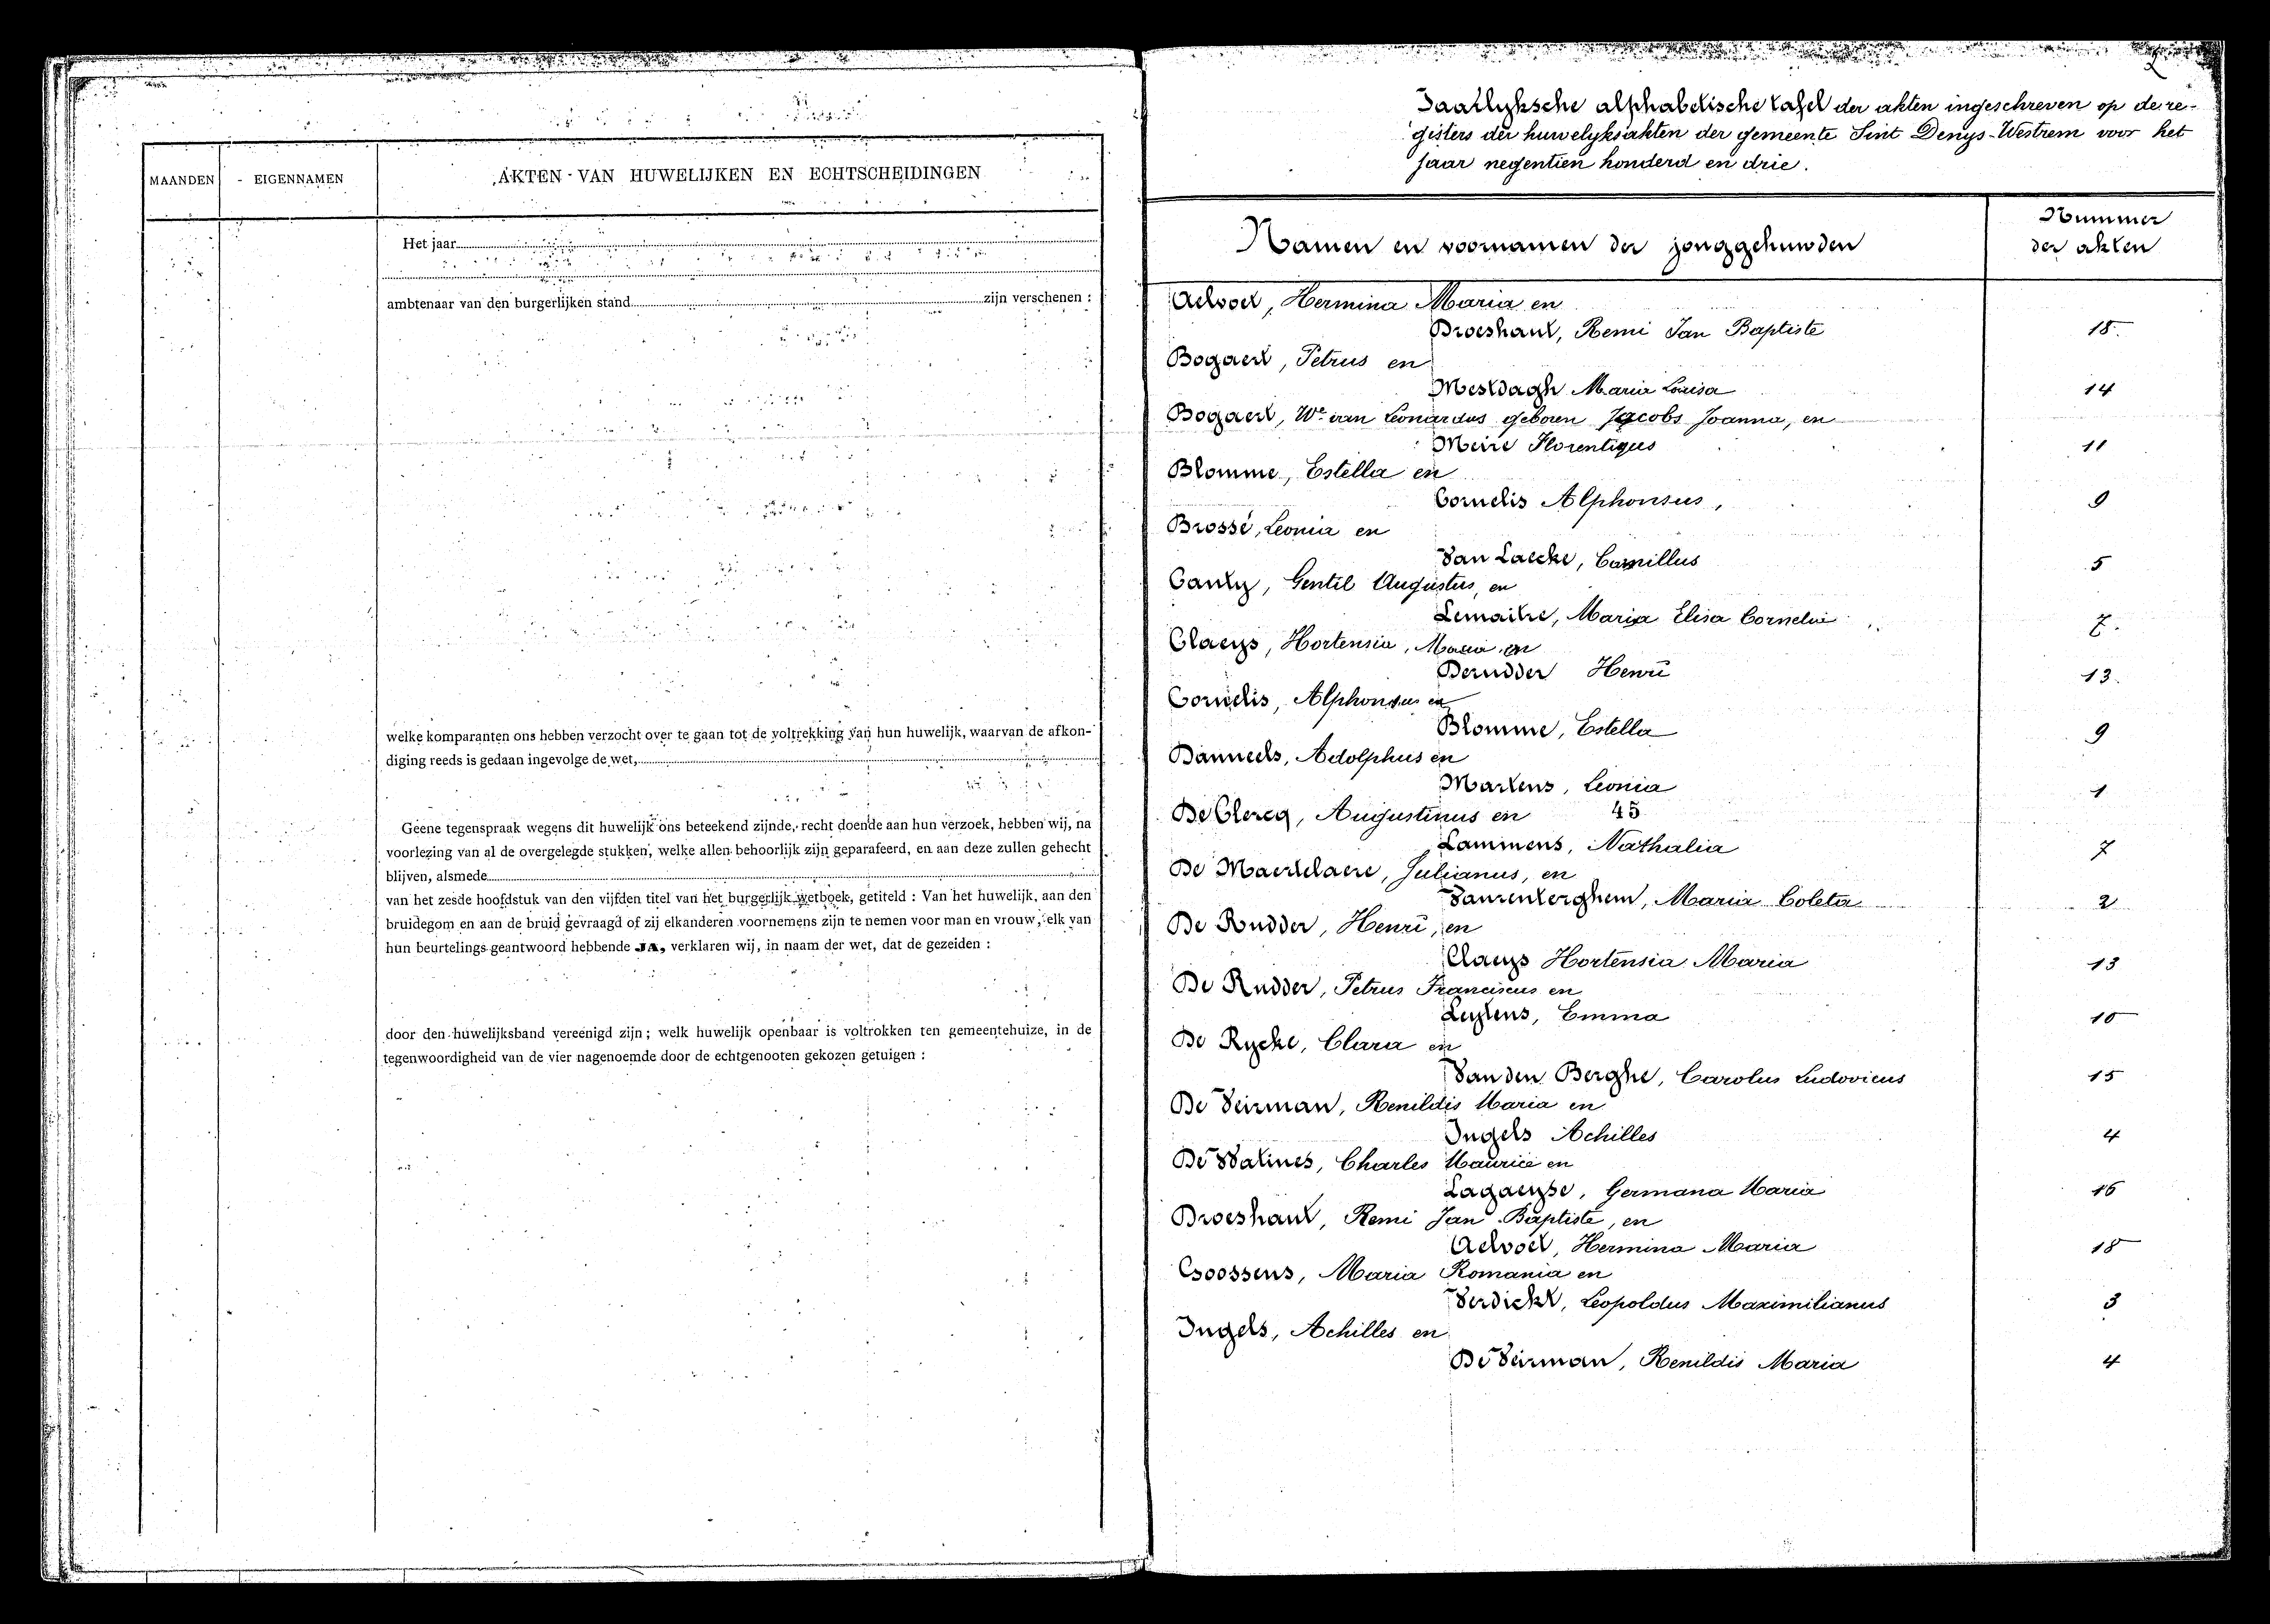 MAANDEN
EIGENNAMEN
AKTEN VAN HUWELIJKEN EN ECHTSCHEIDINGEN
Het jaar
ambtenaar van den burgerlijken stand zijn verschenen :
welke komparanten ons hebben verzocht over te gaan tot de voltrekking van hun huwelijk, waarvan de afkon-
diging reeds is gedaan ingevolge de wet,
Geene tegenspraak wegens dit huwelijk ons beteekend zijnde, recht doende aan hun verzoek, hebben wij, na
voorlezing van al de overgelegde stukken, welke allen behoorlijk zijn geparafeerd, en aan deze zullen gehecht
blijven, alsmede
van het zesde hoofdstuk van den vijfden titel van het burgerlijk wetboek, getiteld : Van het huwelijk, aan den
bruidegom en aan de bruid gevraagd of zij elkanderen voornemens zijn te nemen voor man en vrouw, elk van
hun beurtelings geantwoord hebbende JA, verklaren wij, in naam der wet, dat de gezeiden :
door den huwelijksband vereenigd zijn ; welk huwelijk openbaar is voltrokken ten gemeentehuize, in de
tegenwoordigheid van de vier nagenoemde door de echtgenooten gekozen getuigen :
2
Jaarlyksche alphabetische tafel der akten ingeschreven op de re-
gisters der huwelyksakten der gemeente Sint Denys-Westrem voor het
jaar negentien honderd en drie.
Namen en voornamen der jonggehuwden
Nummer
der akten
Aelvoet, Hermina Maria en
Broeshant, Remi Jan Baptiste 18
Bogaert, Petrus en
Mestdagh Maria Louisa 14
Bogaert, We van Leonardus geboren Jacobs Joanna, en
Meire Florentinus 11
Blomme, Estella en
Cornelis Alphonsus, 9
Brossé, Leonia en
Van Laecke, Camillus 5
Canty, Gentil Augustus, en
Lemaitre, Maria Elisa Cornelia
Claeys, Hortensia, Maria en
Derudder Henri 13
Cornelis, Alphonsus en
Blomme, Estella 9
Danneels, Adolphus en
Martens, Leonia 1
De Clercq, Augustinus en 45
Lammens, Nathalia 7
De Maertelaere, Julianus, en
Vaurenterghem, Maria Coleta 2
De Rudder, Henri, en
Claeys Hortensia Maria 13
De Rudder, Petrus Franciscus en
Leytens, Emma 10
De Rycke, Clara en
Van den Berghe, Carolus Ludovicus 15
De Veirman, Renildis Maria en
Ingels Achilles 4
De Watines, Charles Maurice en
Lagaeyse, Germana Maria 16
Broeshant, Remi Jan Baptiste, en
Aelvoet, Hermina Maria 18
Goossens, Maria Romania en
Verdickt, Leopoldus Maximilianus 3
Ingels, Achilles en
De Veirman, Renildis Maria 4